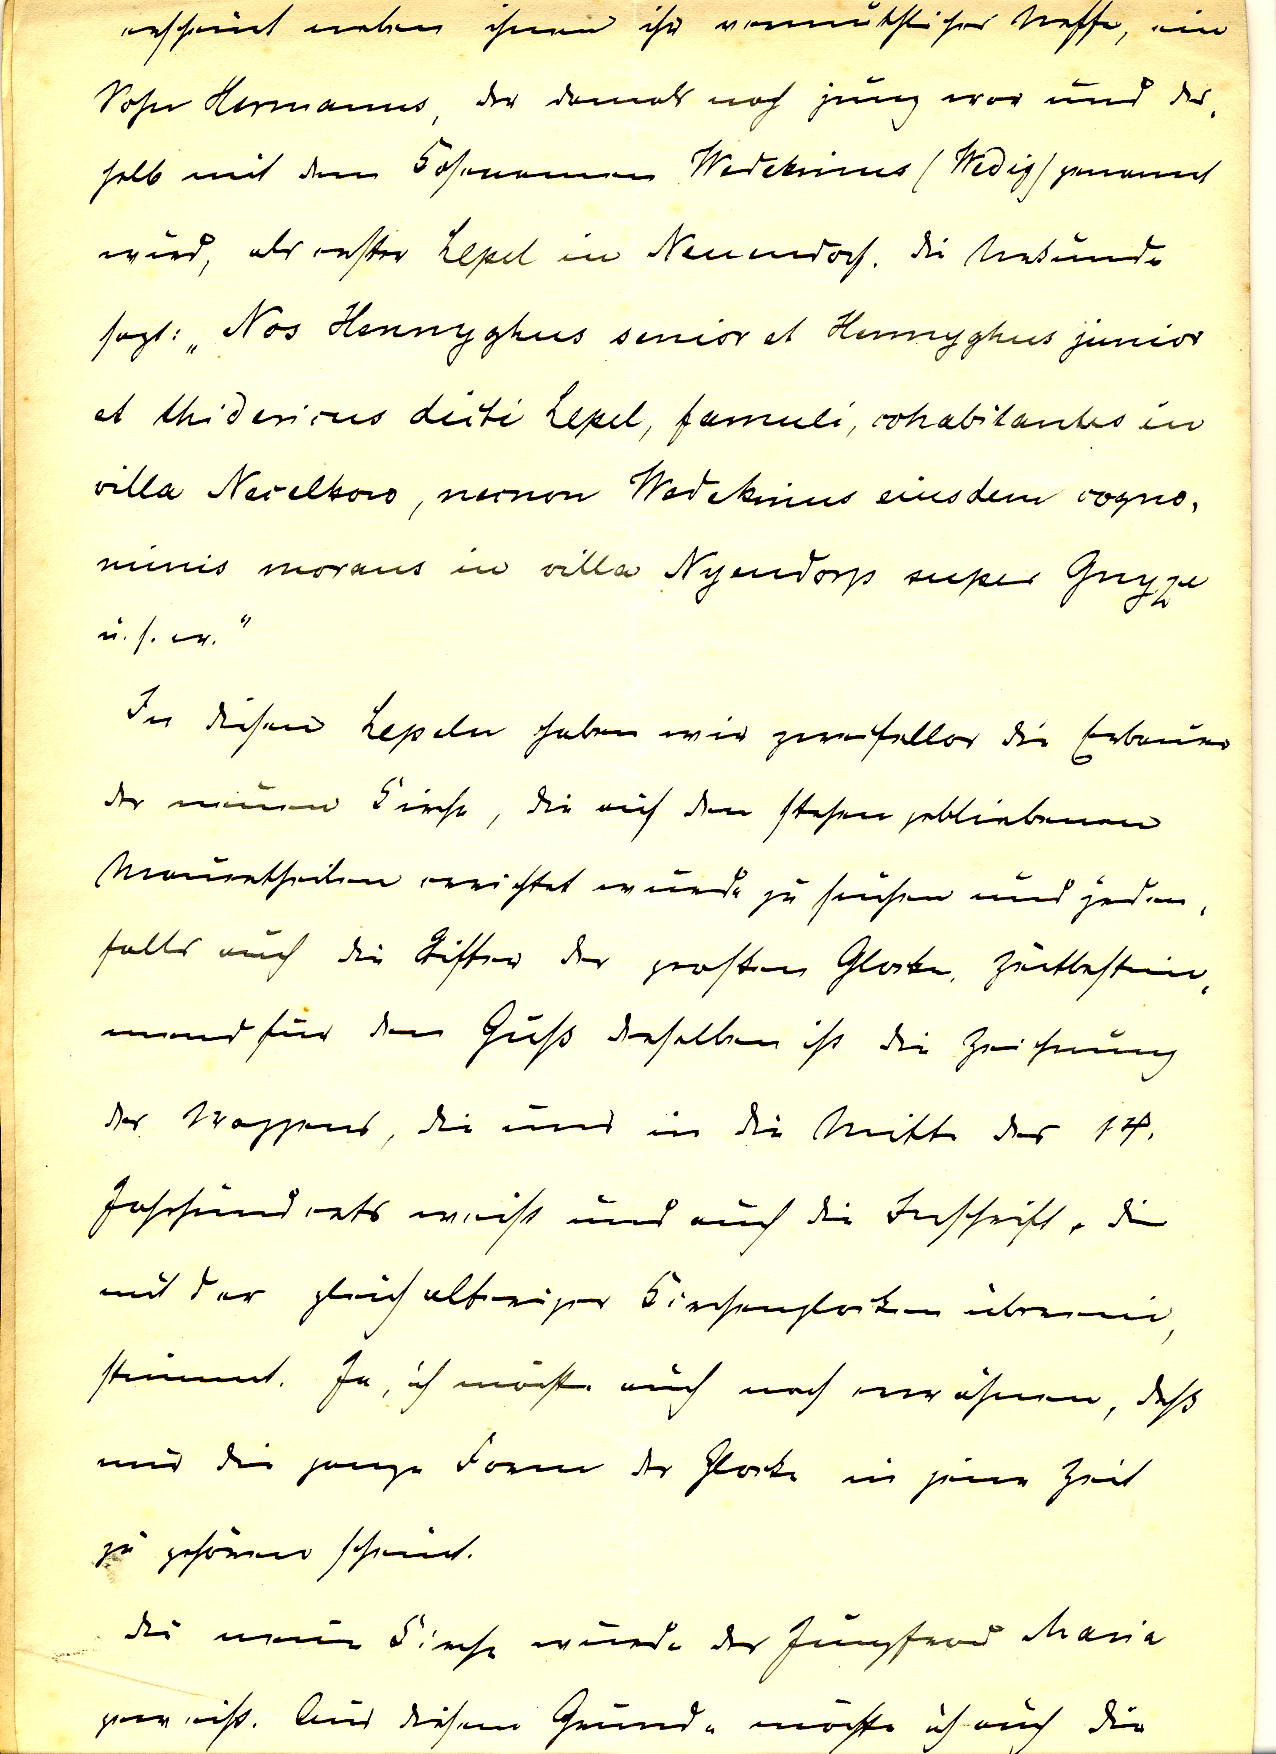 erscheint neben ihnen ihr vermuthlicher Neffe, ein
Sohn Hermanns, der damals noch jung war und des-
halb mit dem Kosenamen Wedekinus (Wedig) genannt
wird, als erster Lepel in Neuendorf. Die Urkunde
sagt: „Nos Hennyghus senior et Hennyghus junior
et thidericus dicti Lepel, famuli, cohabitantes in
villa Necelkow, necnon Wedekinus eiusdem cogno-
minis morans in villa Nyendorp super Gnyze
u. s. w."
In diesen Lepeln haben wir zweifellos die Erbauer
der neuen Kirche, die auf den stehen gebliebenen
Mauertheilen errichtet wurde zu suchen und jeden-
falls auch die Stifter der großen Glocke. Zeitbestim-
mend für den Guß derselben ist die Zeichnung
des Wappens, die uns in die Mitte des 14.
Jahrhunderts weist und auch die Inschrift, die
mit der gleichaltriger Kirchenglocken überein-
stimmt. Ja, ich möchte auch noch erwähnen, daß
mir die ganze Form der Glocke in jene Zeit
zu gehören scheint.
Die neue Kirche wurde der Jungfrau Maria
geweiht. Aus diesem Grunde möchte ich auch die